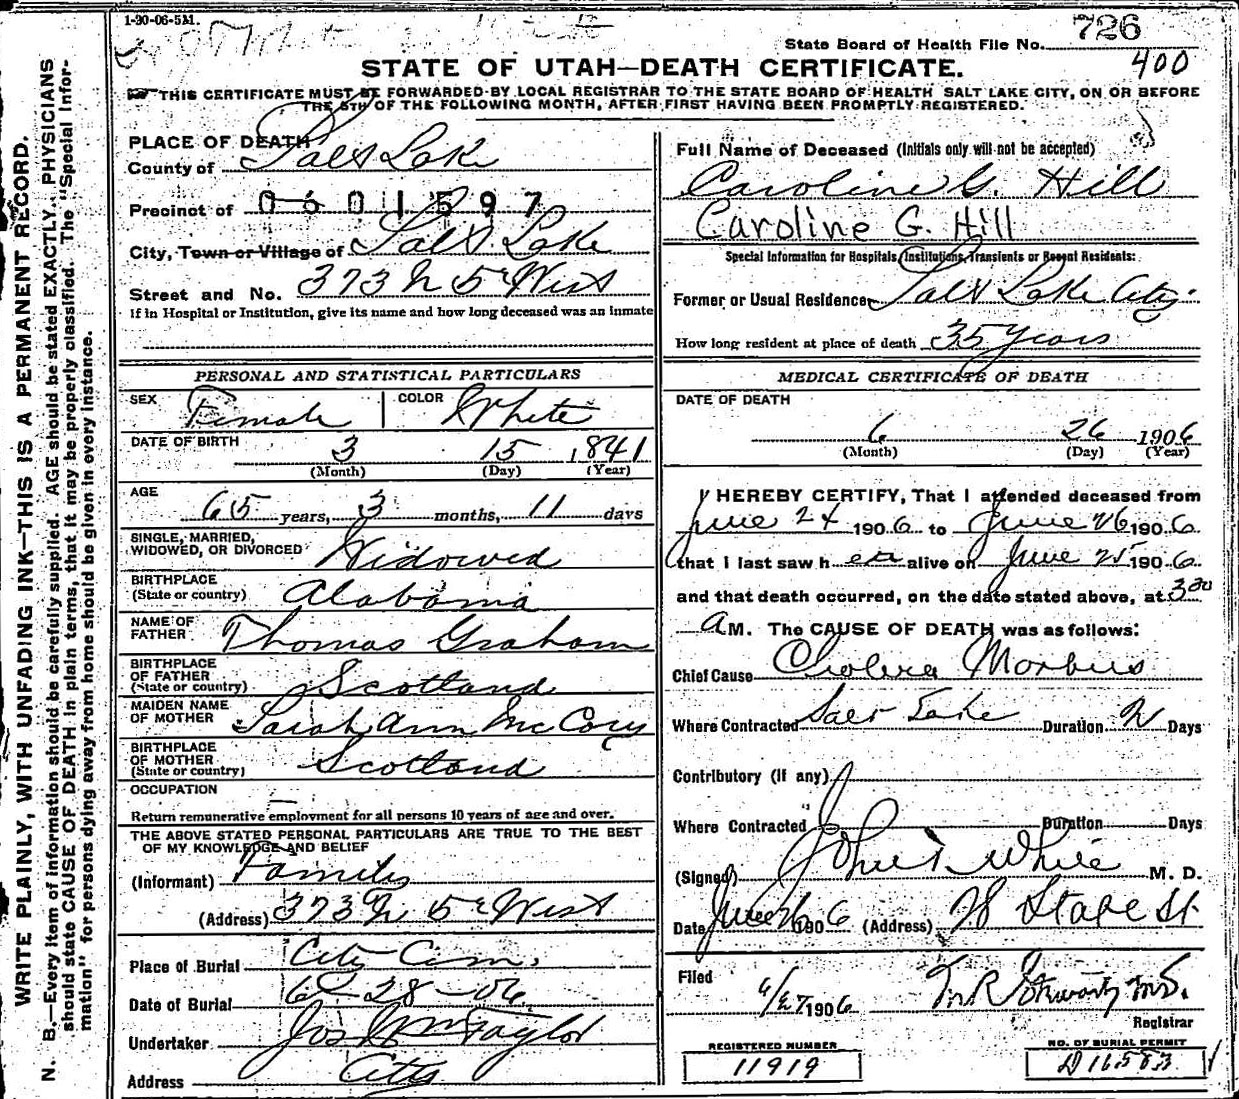 1-30-06-5M.
State Board of Health File No. 726
400
STATE OF UTAH—DEATH CERTIFICATE.
THIS CERTIFICATE MUST BE FORWARDED BY LOCAL REGISTRAR TO THE STATE BOARD OF HEALTH SALT LAKE CITY, ON OR BEFORE
THE 5TH OF THE FOLLOWING MONTH, AFTER FIRST HAVING BEEN PROMPTLY REGISTERED.
WRITE PLAINLY, WITH UNFADING INK—THIS IS A PERMANENT RECORD.
N. B.—Every item of information should be carefully supplied. AGE should be stated EXACTLY. PHYSICIANS
should state CAUSE OF DEATH in plain terms, that it may be properly classified. The "Special Infor-
mation" for persons dying away from home should be given in every instance.
PLACE OF DEATH
County of Salt Lake
Precinct of 0601597
City, Town or Village of Salt Lake
Street and No. 373 N 5th West
If in Hospital or Institution, give its name and how long deceased was an inmate
PERSONAL AND STATISTICAL PARTICULARS
SEX Female COLOR White
DATE OF BIRTH 3 15 1841
(Month) (Day) (Year)
AGE
65 years, 3 months, 11 days
SINGLE, MARRIED,
WIDOWED, OR DIVORCED Widowed
BIRTHPLACE
(State or country) Alabama
NAME OF
FATHER Thomas Graham
BIRTHPLACE
OF FATHER
(State or country) Scotland
MAIDEN NAME
OF MOTHER Sarah Ann McCory
BIRTHPLACE
OF MOTHER
(State or country) Scotland
OCCUPATION —
Return remunerative employment for all persons 10 years of age and over.
THE ABOVE STATED PERSONAL PARTICULARS ARE TRUE TO THE BEST
OF MY KNOWLEDGE AND BELIEF
(Informant) Family
(Address) 373 N 5th West
Place of Burial City Cem.
Date of Burial 6-28-06
Undertaker Jos Wm Taylor
Address City
Full Name of Deceased (Initials only will not be accepted)
Caroline G. Hill
Caroline G. Hill
Special Information for Hospitals, Institutions, Transients or Recent Residents:
Former or Usual Residence Salt Lake City
How long resident at place of death 35 years
MEDICAL CERTIFICATE OF DEATH
DATE OF DEATH
6 26 1906
(Month) (Day) (Year)
I HEREBY CERTIFY, That I attended deceased from
June 24 1906 to June 26 1906
that I last saw her alive on June 25 1906
and that death occurred, on the date stated above, at 3 30
A M. The CAUSE OF DEATH was as follows:
Chief Cause Cholera Morbus
Where Contracted Salt Lake Duration 2 Days
Contributory (if any)
Where Contracted Duration Days
(Signed) White M. D.
Date June 26 1906 (Address) State St
Filed 6/27 1906 M.D.
Registrar
REGISTERED NUMBER
11919
NO. OF BURIAL PERMIT
D16583